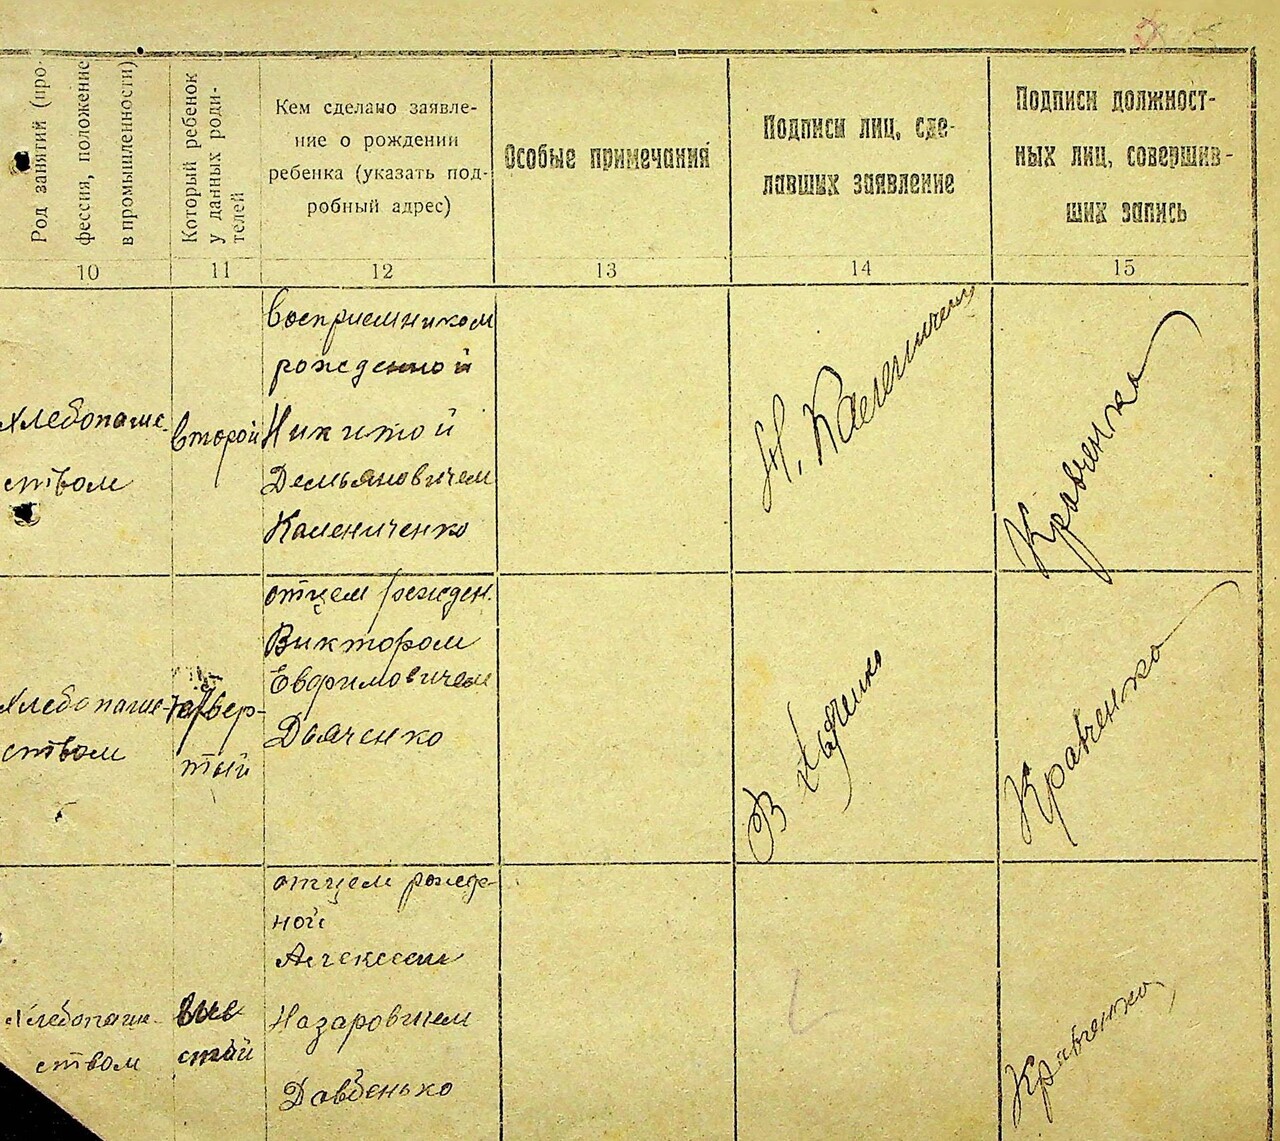 Род занятий (про-
фессия, положение
в промышленности)
Который ребенок
у данных роди-
телей
Кем сделано заявле-
ние о рождении
ребенка (указать под-
робный адрес)
Особые примечания
Подписи лиц, сде-
лавших заявление
Подписи должност-
ных лиц, совершив-
ших запись
10
11
12
13
14
15
Хлебопаше-
ством
второй
восприемником
рожденной
Никитой
Демьяновичем
Калениченко
Н. Калениченко
Кравченко
Хлебопаше-
ством
четвер-
тый
отцем рожден.
Виктором
Евфимовичем
Дьяченко
В Дьяченко
Кравченко
Хлебопаше-
ством
отцем рожде-
ной
Алексеем
Назаровичем
Довбенько
Кравченко